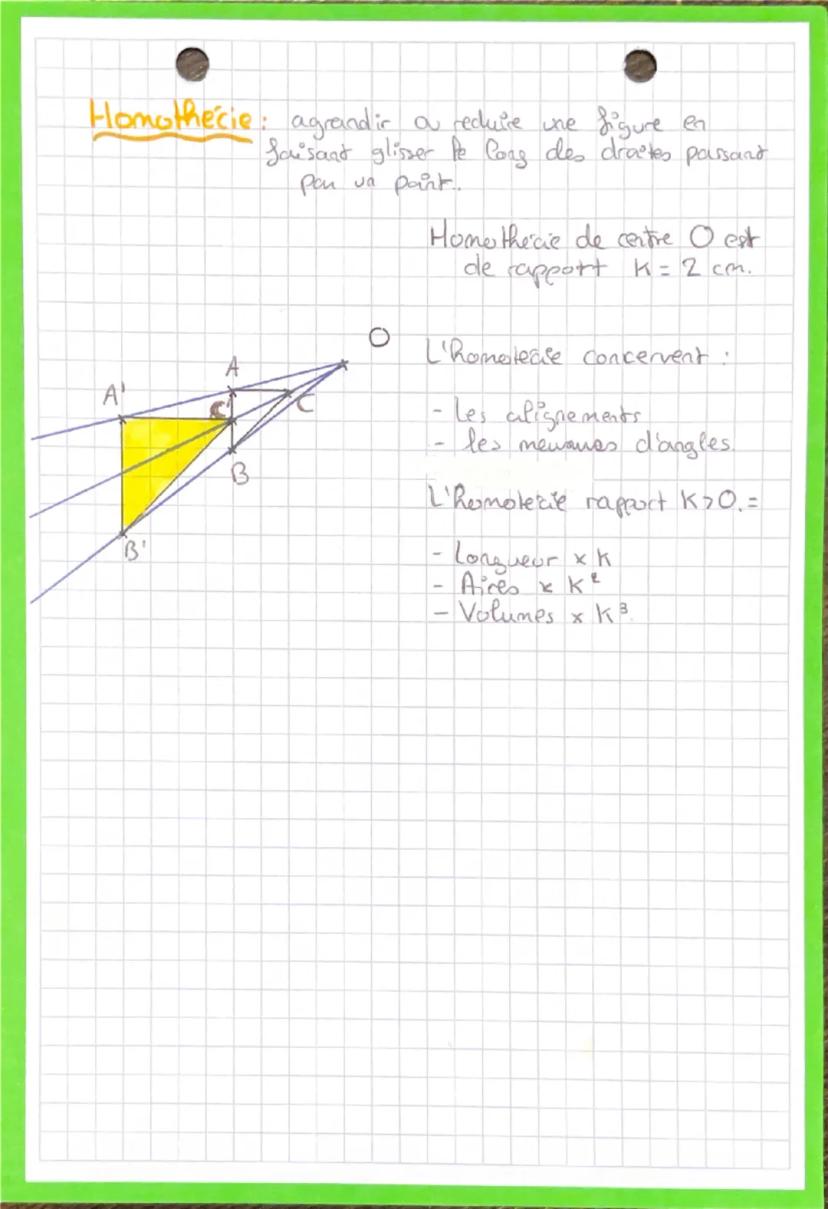 Homothécie : agrandir ou reduire une figure en
faisant glisser le long des droites passant
par un point.
Homothécie de centre O est
de rapport K = 2 cm.
O
A
A'
C'
C
B
B'
L'Homotecie concervent :
- Les alignements
- les mesures d'angles.
L'Homotecie rapport K>0. =
- Longueur x K
- Aires x K²
- Volumes x K³.